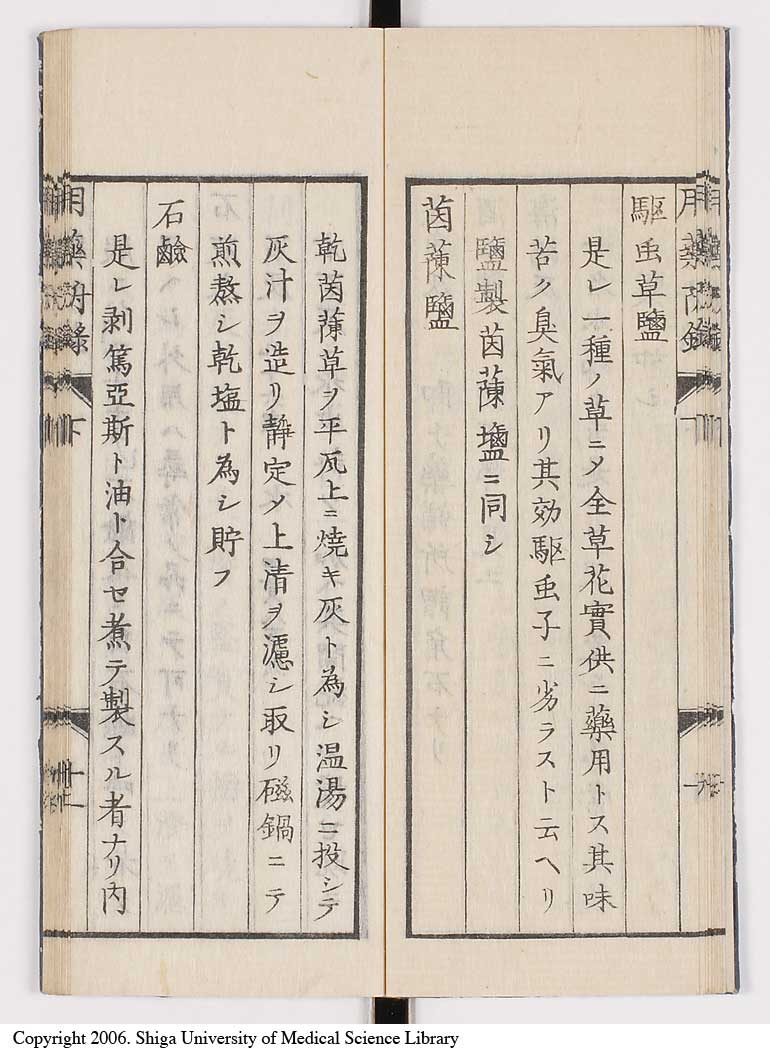 駆虫草鹽
是レ一種ノ草ニ〆全草花實供ニ藥用トス其味
苦ク臭氣アリ其効駆虫子ニ劣ラスト云ヘリ
鹽製茵蔯鹽ニ同シ
茵蔯鹽
乾茵蔯草ヲ平瓦上ニ燒キ灰ト為シ温湯ニ投シテ
灰汁ヲ造リ靜定〆上清ヲ濾シ取リ磁鍋ニテ
煎熬シ乾塩ト為シ貯フ
石鹼
是レ剥篤亞斯ト油ト合セ煮テ製スル者ナリ内
用藥 錄
下
Copyright 2006. Shiga University of Medical Science Library